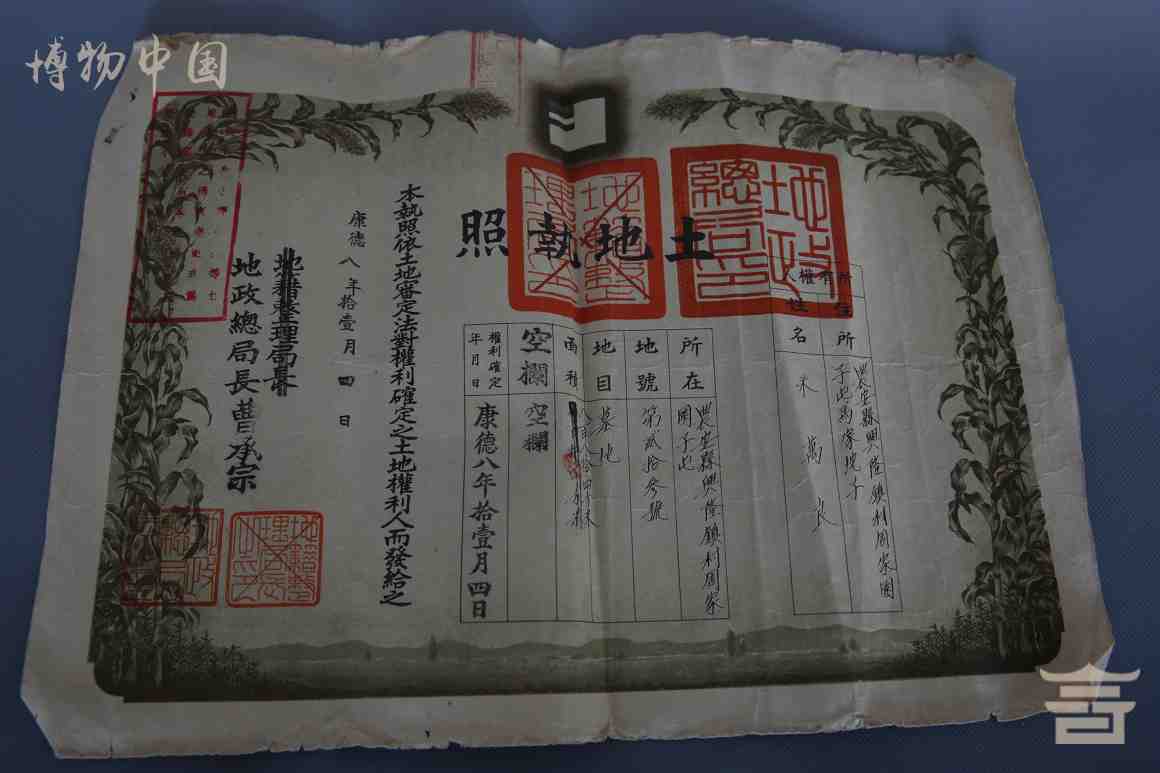 博物中国
土地執照
地政總局之印
所有權人
住所
農安縣興隆鎮村周家圍
子屯馬家坨子
姓名
朱萬良
所在
農安縣興隆鎮村周家
圍子屯
地號
第貳拾參號
地目
墓地
面積
空欄
空欄
權利確定
年月日
康德八年拾壹月四日
本執照依土地審定法對權利確定之土地權利人而發給之
康德八年拾壹月四日
地籍整理局長
地政總局長曹承宗